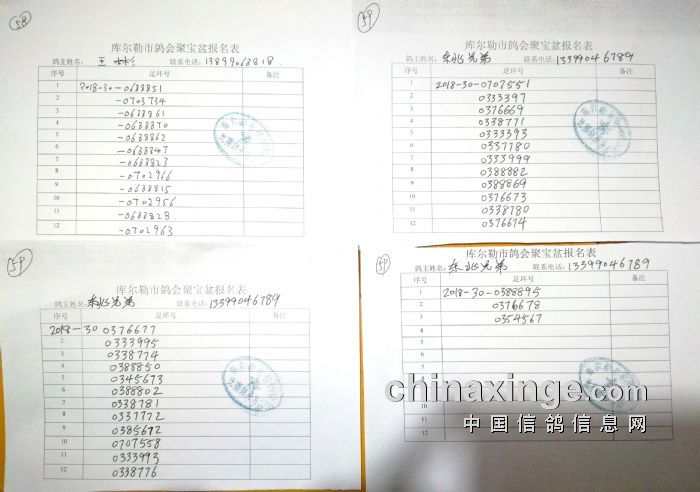 58
库尔勒市鸽会聚宝盆报名表
鸽主姓名: 王 彬 联系电话: 13899068818.
序号 足环号 备注
1 2018-30-0688851
2 -0703734
3 -0688861
4 -0688870
5 -0688862
6 -0688847
7 -0688823
8 -0702966
9 -0688815
10 -0702956
11 -0688828.
12 -0702963
59
库尔勒市鸽会聚宝盆报名表
鸽主姓名: 东北兄弟 联系电话: 13399046789
序号 足环号 备注
1 2018-30-0707551
2 0333397
3 0376669
4 0338771
5 0333393
6 0337780
7 0333999
8 0388882
9 0388869
10 0376673
11 0338780
12 0376674
59
库尔勒市鸽会聚宝盆报名表
鸽主姓名: 东北兄弟 联系电话: 13399046789
序号 足环号 备注
1 2018-30 0376677
2 0333995
3 0338774
4 0388850
5 0345673
6 0388802
7 0338781
8 0337772
9 0385672
10 0707558
11 0333993
12 0338776
59
库尔勒市鸽会聚宝盆报名表
鸽主姓名: 东北兄弟 联系电话: 13399046789
序号 足环号 备注
1 2018-30-0388895
2 0376678
3 0354567
4
5
6
7
8
9
10
11
12
chinaxinge.com
中国信鸽信息网